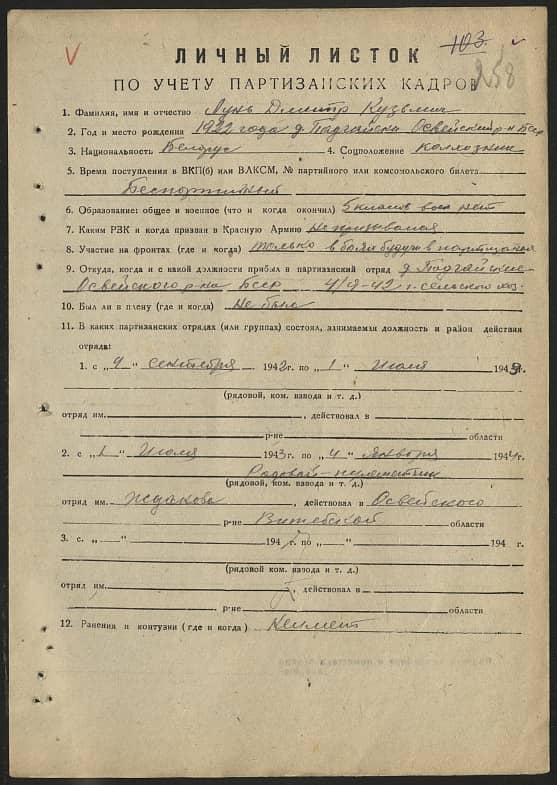 103.
258
ЛИЧНЫЙ ЛИСТОК
ПО УЧЕТУ ПАРТИЗАНСКИХ КАДРОВ
1. Фамилия, имя и отчество Лунь Дмитр Кузьмич
2. Год и место рождения 1922 года д. Подгайски Освейский р-н Бсср
3. Национальность Белорус 4. Соцположение колхозник
5. Время поступления в ВКП(б) или ВЛКСМ, № партийного или комсомольского билета
Беспартийный
6. Образование: общее и военное (что и когда окончил) 5 класов воен нет
7. Каким РЗК и когда призван в Красную Армию Не призывался
8. Участие на фронтах (где и когда) только в боях будучи в партизанах
9. Откуда, когда и с какой должности прибыл в партизанский отряд д. Подгайские
Освейского р-на Бсср 4/9-42 г. сельского хоз.
10. Был ли в плену (где и когда) Не был
11. В каких партизанских отрядах (или группах) состоял, занимаемая должность и район действия
отряда:
1. с „4" сентября 1942 г. по „1" июля 1943
(рядовой, ком. взвода и т. д.)
отряд им. , действовал в
р-не области
2. с „1" Июля 1943 г. по „4" января 1944 г.
Рядовой-пулеметчик
(рядовой, ком. взвода и т. д.)
отряд им. , действовал в Освейского
р-не Витебской области
3. с. „ " 194 г. по „ " 194 г.
(рядовой, ком. взвода и т. д.)
отряд им. , действовал в
р-не области
12. Ранения и контузии (где и когда)